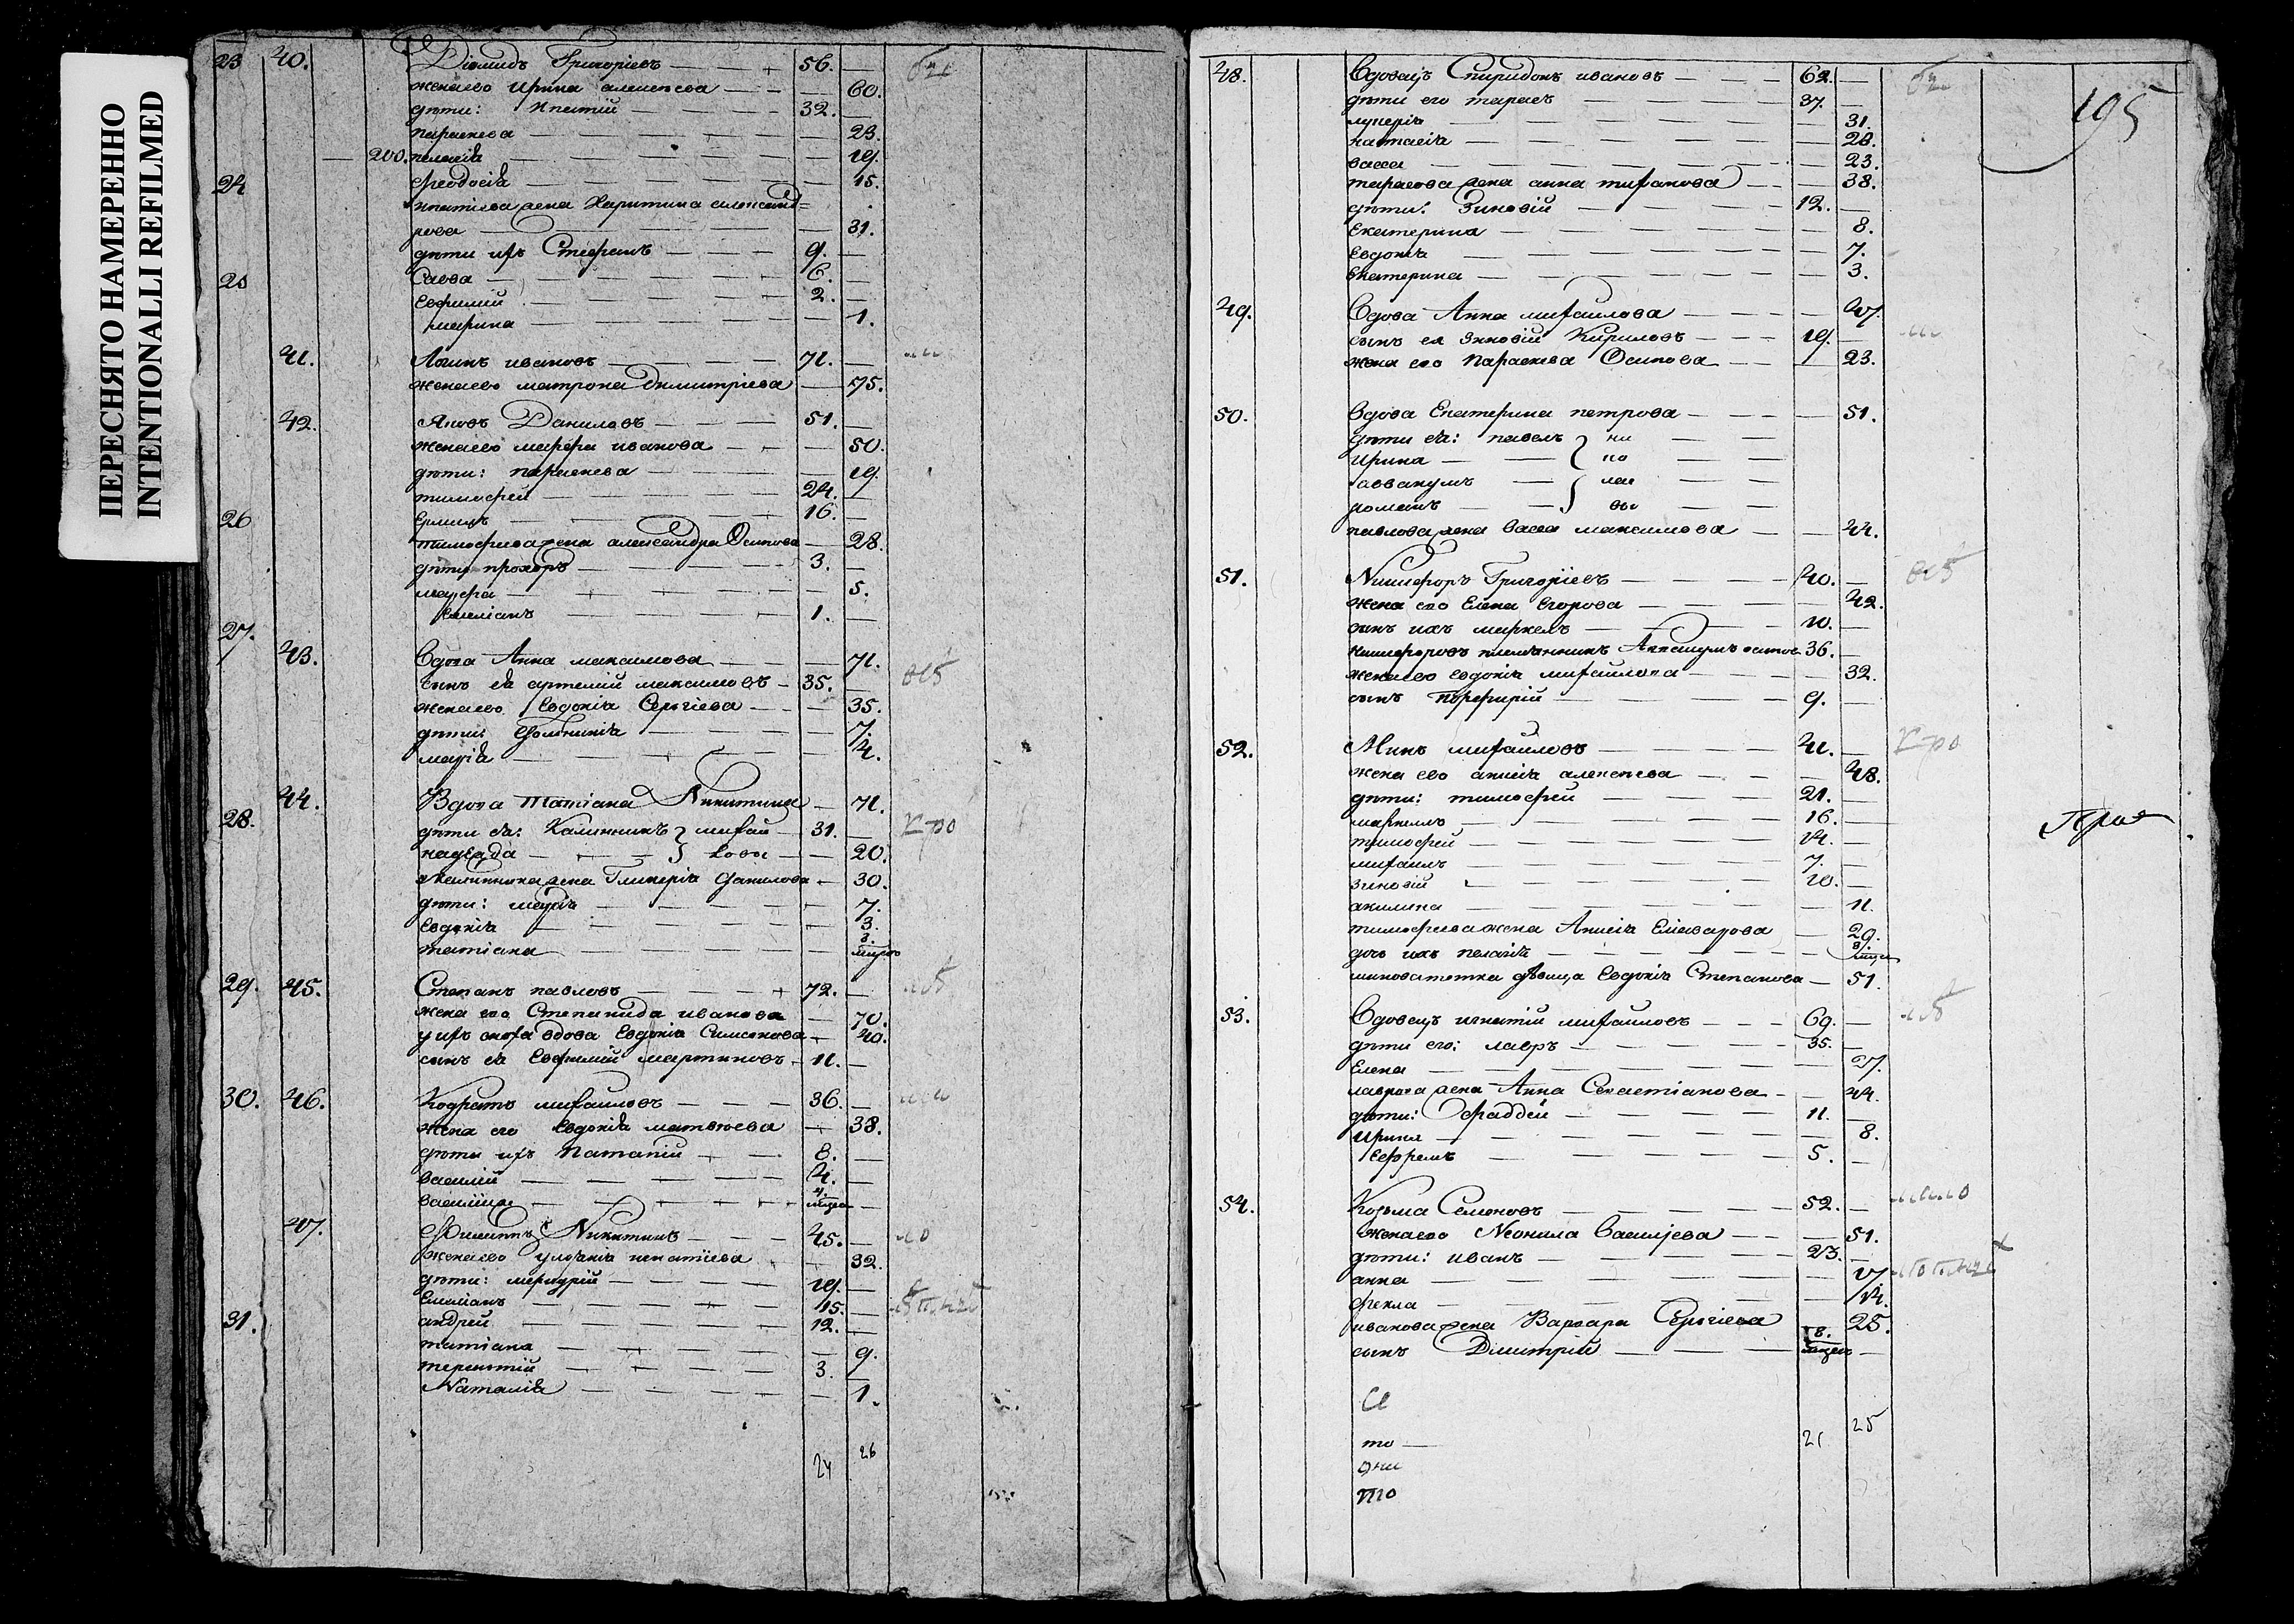 ПЕРЕСНЯТО НАМЕРЕННО
INTENTIONALLI REFILMED
23 40. Діомидъ Григоріевъ 56.
жена его Ирина алексеева 60.
дѣти: Ипатій 32.
параскева 23.
200. пелагіѧ 19.
24 феодосіѧ 15.
ипатіева жена Харитина александ=
рова 31.
дѣти ихъ Стефанъ 9.
25 Савва 6.
Евфимий 2.
марина 1.
41. Логинъ ивановъ 71.
жена его матрона димитріева 75.
42. Яковъ Даниловъ 51.
жена его марфа иванова 50.
дѣти: параскева 19.
тимофей 24.
26 Ермилъ 16.
тимофеева жена александра Осипова 28.
дѣти прохоръ 3.
марфа 5.
Емеліанъ 1.
27. 43. Вдова Анна максимова 71.
сынъ еѧ артемій максимовъ 35.
жена его Евдокіѧ Сергіева 35.
дѣти: Домникіѧ 7.
маріѧ 4.
44. Вдова Татіана Никитина 71.
28. дѣти еѧ: Калинникъ } михай 31.
надѣжда } ловы 20.
Калинника жена Гликеріѧ Данилова 30.
дѣти: маріѧ 7.
Евдокіѧ 3.
татіана 3.
29. 45. Степанъ павловъ 72.
жена его Степанида иванова 70.
у ихъ сноха вдова Евдокіѧ Симеонова 40.
сынъ еѧ Евфимий мартиновъ 11.
30. 46. Кодратъ михайловъ 36.
жена его Евдокіѧ матвѣева 38.
дѣти ихъ Потапий 8.
василий 4.
василиса 4. мцеѧ
47. Филиппъ Никитинъ 45.
жена его улѧніѧ игнатіева 32.
дѣти: меркурій 19.
Емеліанъ 15.
31. андрей 12.
татіана 9.
терентий 3.
Наталіѧ 1.
24 26
195
48. Вдовецъ Спиридонъ ивановъ 62.
дѣти его тарасъ 37.
лукеріѧ 31.
настасіѧ 28.
васса 23.
тарасова жена анна тиханова 38.
дѣти: Зиновій 12.
Екатерина 8.
Евдокіѧ 7.
Екатерина 3.
49. Вдова Анна михайлова 47.
сынъ ея Зиновій Кириловъ 19.
жена его параскева Осипова 23.
50. Вдова Екатерина петрова 51.
дѣти еѧ: павелъ } ни
Ирина } ко
аввакумъ } лае
романъ } вы
павлова жена васса максимова 24.
51. Никифоръ Григоріевъ 40.
жена его Елена Егорова 42.
сынъ ихъ маркелъ 10.
никифоровъ племѧнникъ осипов 36.
жена его евдокіѧ михайлова 32.
сынъ порфирій 9.
52. Минъ михайловъ 41.
жена его анисіѧ алексеева 48.
дѣти: тимофей 21.
маркелъ 16.
тимофей 14.
михаилъ 7.
зиновій 10.
акилина 11.
тимофеева жена Анисіѧ Елеазарова 29.
дочь ихъ пелагіѧ 8.
минова тетка дѣвица Евдокіѧ Степанова 51.
53. Вдовецъ игнатій михайловъ 69.
дѣти его: лавръ 35.
Елена 27.
лаврова жена Анна Севастіанова 44.
дѣти: Фаддей 11.
Ирина 8.
Ефремъ 5.
54. Козма Семеновъ 52.
жена его Неонила Василіева 51.
дѣти: иванъ 23.
анна 17.
фекла 14.
иванова жена Варвара Сергіева 25.
сынъ Димитрій 8.
то
21 25
дни
то